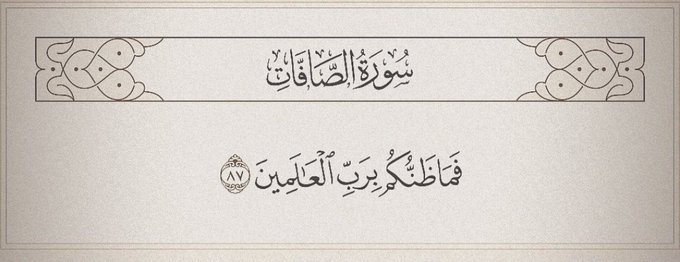 سُورَةُ الصَّافَّاتِ
فَمَا ظَنُّكُم بِرَبِّ ٱلْعَٰلَمِينَ ٨٧